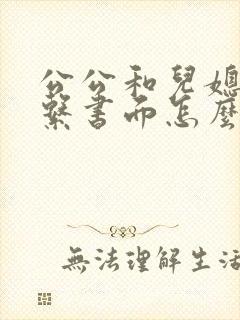 公公和兒媳
繫書而怎麼
無法理解生活